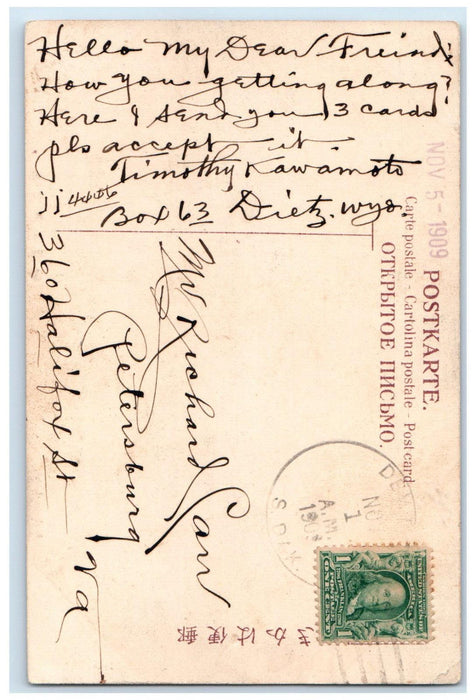 Hello My Dear Freind
How you getting along?
Here I send you 3 cards
pls accept it
Timothy Kawamoto
jj 4406
Box 63 Dietz, wyo.
NOV 5 - 1909
POSTKARTE.
Carte postale - Cartolina postale - Post card.
ОТКРЫТОЕ ПИСЬМО.
Mr Richard Carr
Petersburg
Va
360 Halifox St
NO
1
A.M.
190
S. DAK.
1
1
郵便はかき